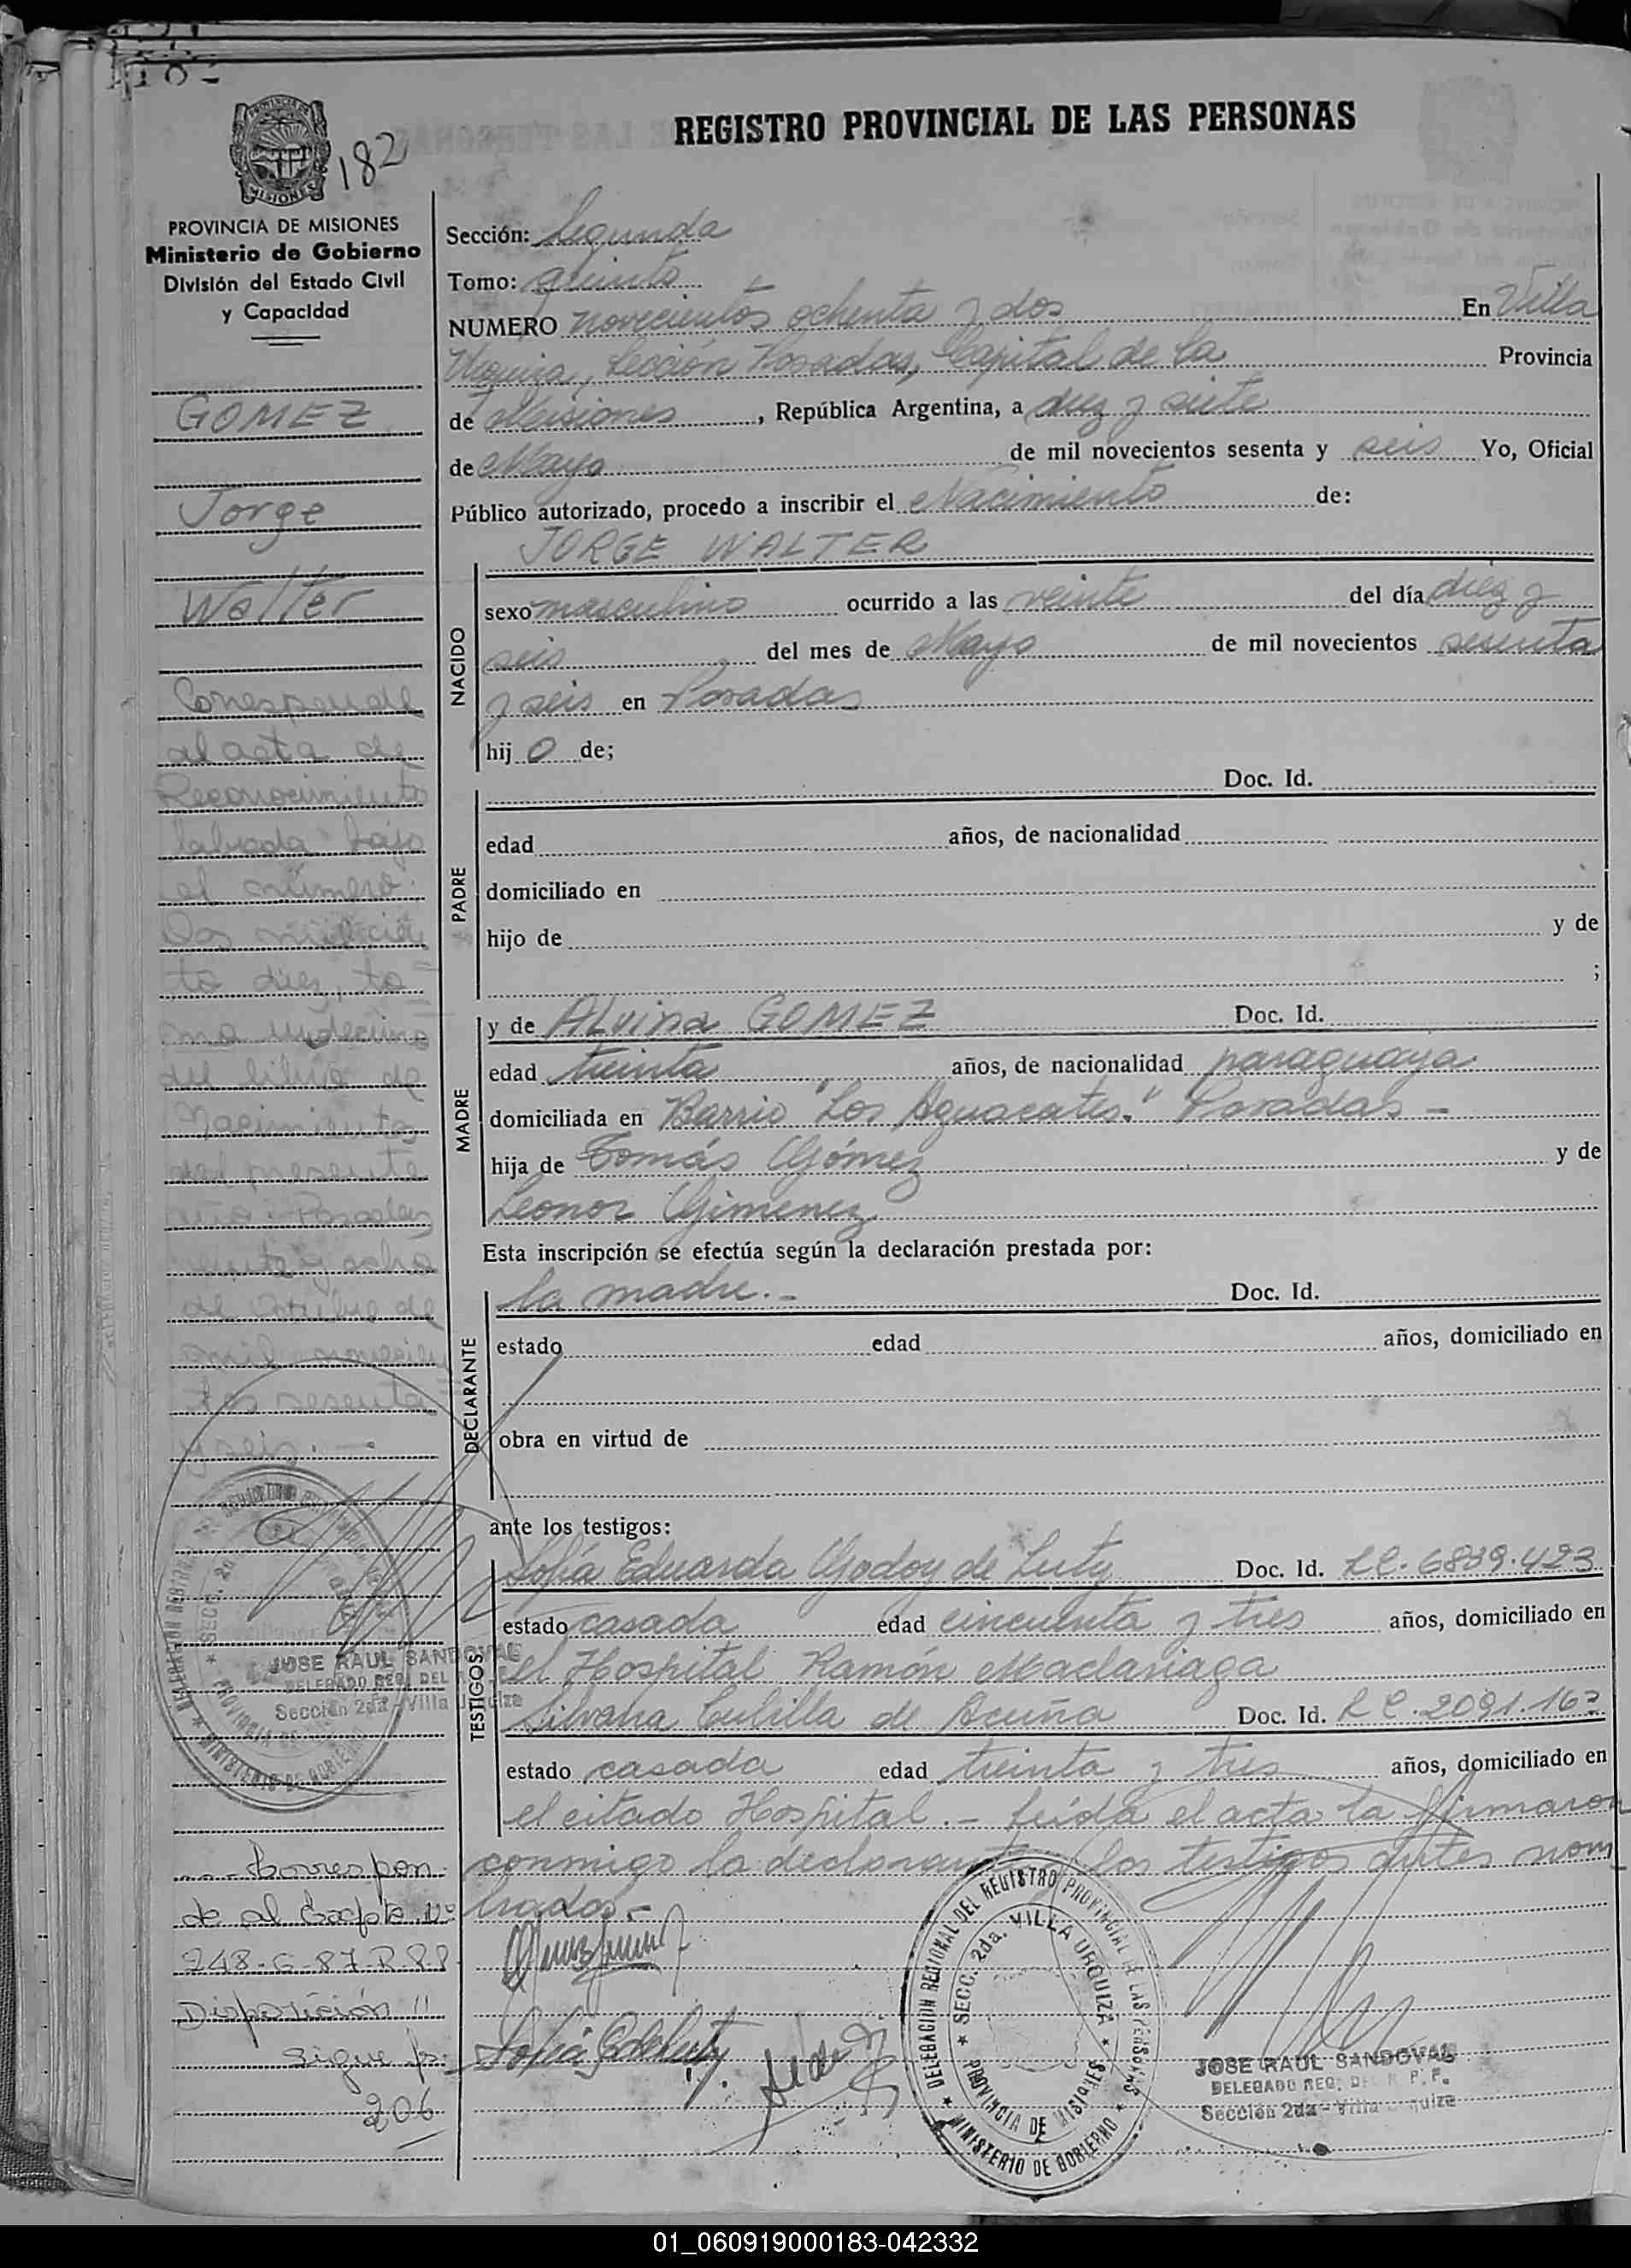 REGISTRO PROVINCIAL DE LAS PERSONAS
182
MISIONES
PROVINCIA DE MISIONES
Ministerio de Gobierno
División del Estado Civil
y Capacidad
GOMEZ
Jorge
Walter
Corresponde
al acta de
Reconocimiento
labrada bajo
el número
Dos mil cien
to diez, to
mo undecimo
del libro de
Nacimientos
del presente
año. Posadas
veinte y ocho
de Octubre de
mil novecien
tos sesenta
y seis.-
JOSE RAUL SANDOVAL
DELEGADO REG. DEL
Sección 2da - Villa Urquiza
Correspon
de al Expte. Nº
248-G-87-R.P.P
Disposición 11
Sigue fs:
206
Sección: Segunda
Tomo: quinto
NUMERO novecientos ochenta y dos En Villa
Urquiza, Sección Posadas, Capital de la Provincia
de Misiones, República Argentina, a diez y siete
de Mayo de mil novecientos sesenta y seis Yo, Oficial
Público autorizado, procedo a inscribir el Nacimiento de:
JORGE WALTER
NACIDO
sexo masculino ocurrido a las veinte del día diez y
seis del mes de Mayo de mil novecientos sesenta
y seis en Posadas
hijo de;
Doc. Id.
PADRE
edad años, de nacionalidad
domiciliado en
hijo de y de
;
MADRE
y de ALvina GOMEZ Doc. Id.
edad treinta años, de nacionalidad paraguaya
domiciliada en Barrio "Los Aguacates." Posadas -
hija de Tomás Gómez y de
Leonor Gimenez
Esta inscripción se efectúa según la declaración prestada por:
DECLARANTE
la madre.- Doc. Id.
estado edad años, domiciliado en
obra en virtud de
ante los testigos:
TESTIGOS
Sofía Eduarda Godoy de Luty Doc. Id. LC. 6839.423
estado casada edad cincuenta y tres años, domiciliado en
el Hospital Ramón Madariaga
Silvana Cubilla de Acuña Doc. Id. LC. 2091.163
estado casada edad treinta y tres años, domiciliado en
el citado Hospital.- Leída el acta la firmaron
conmigo la declarante y los testigos antes nom
brados.-
DELEGACION REGIONAL DEL REGISTRO PROVINCIAL DE LAS PERSONAS
SECC. 2da. VILLA URQUIZA
PROVINCIA DE MISIONES
MINISTERIO DE GOBIERNO
JOSE RAUL SANDOVAL
DELEGADO REG. DEL R. P. P.
Sección 2da - Villa Urquiza
01_060919000183-042332